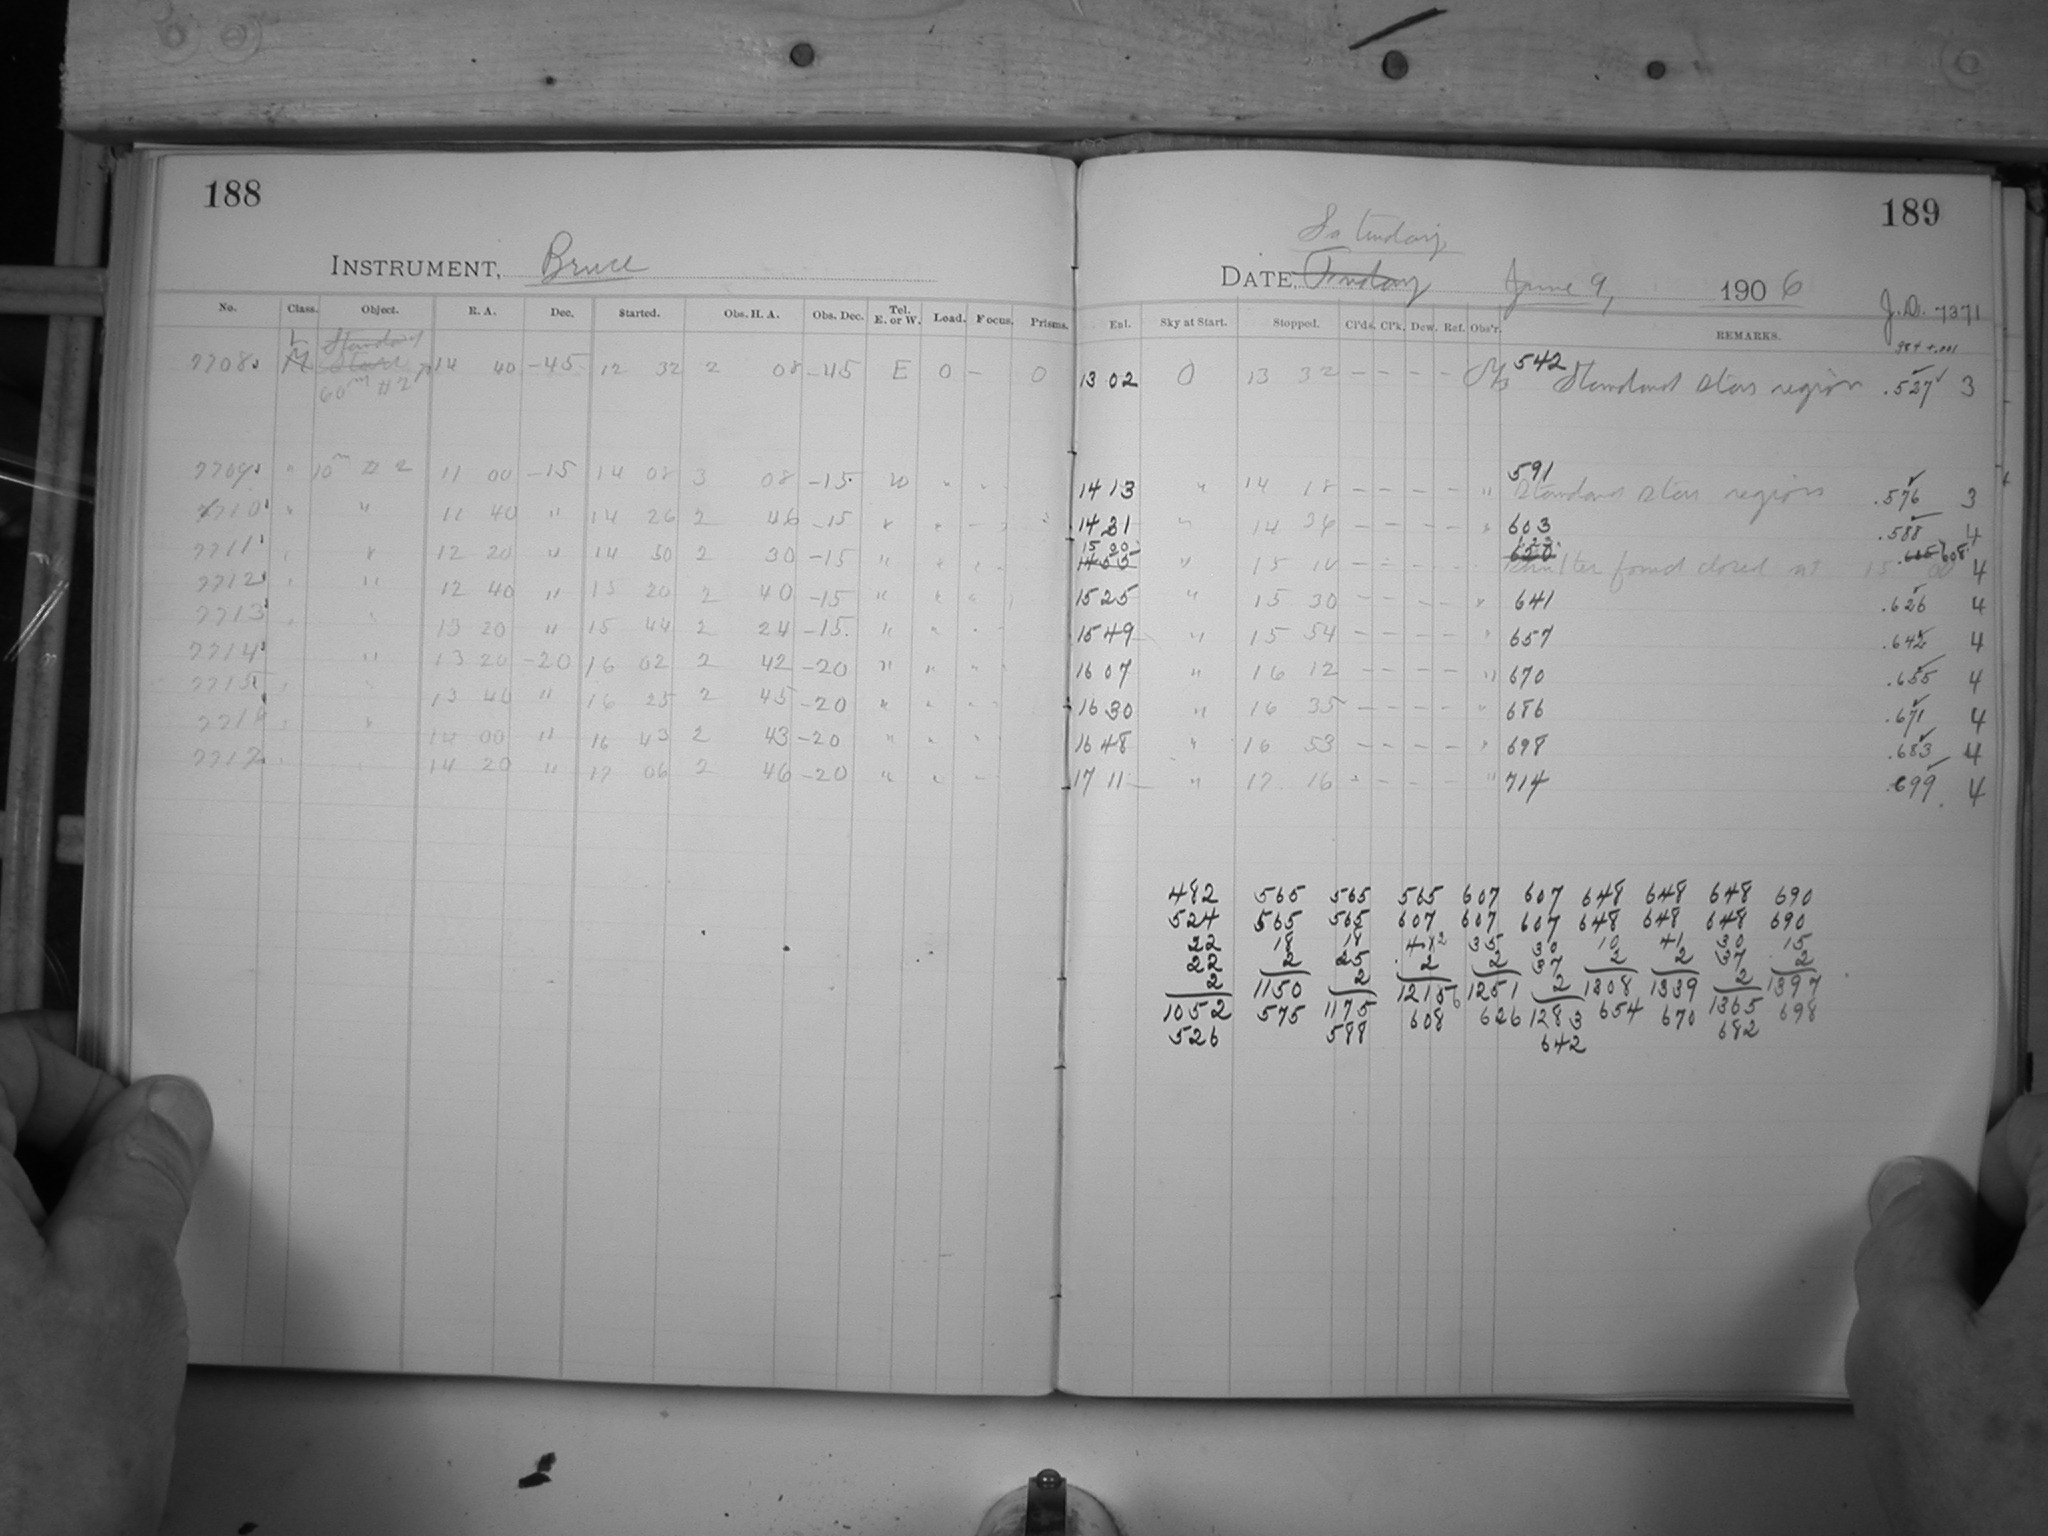 188
189
INSTRUMENT, Bruce
Saturday,
DATE, Friday June 9, 1906
J.D. 7371
No. Class. Object. R. A. Dec. Started. Obs. H. A. Obs. Dec. Tel. E. or W. Load. Focus. Prisms. Ent. Sky at Start. Stopped. Cl'ds. Cl'k. Dew. Ref. Obs'r. REMARKS.
L Standard
7708 M Stars 14 40 -45 12 32 2 08 -45 E 0 - 0 13 02 0 13 32 - - - - 542 Standard Stars region .527 3
60m #2
7709 " 10m #2 11 00 -15 14 08 3 08 -15 W " " 14 13 " 14 18 - - - - " 591 Standard Stars regions .576 3
7710 " " 11 40 " 14 26 2 46 -15 " " 14 31 " 14 36 - - - - " 603 .588 4
7711 " 12 20 " 14 50 2 30 -15 " " 15 00 " 15 10 - - - - 620 Shutter found closed at 15 00 .605 608 4
7712 " 12 40 " 15 20 2 40 -15 " " 15 25 " 15 30 - - - - " 641 .626 4
7713 13 20 " 15 44 2 24 -15 " " 15 49 " 15 54 - - - - " 657 .642 4
7714 " 13 20 -20 16 02 2 42 -20 " " 16 07 " 16 12 - - - - " 670 .655 4
7715 13 40 " 16 25 2 45 -20 " " 16 30 " 16 35 - - - - " 686 .671 4
7716 " 14 00 " 16 43 2 43 -20 " " 16 48 " 16 53 - - - - " 698 .683 4
7717 14 20 " 17 06 2 46 -20 " " 17 11 " 17 16 - - - - " 714 .699 4
482 565 565 565 607 607 648 648 648 690
524 565 565 607 607 607 648 648 648 690
22 18 18 42 35 30 10 41 30 15
22 2 25 2 2 37 2 2 37 2
2 1150 2 1215 1251 2 1308 1339 2 1397
1052 575 1175 608 626 1283 654 670 1365 698
526 588 642 682